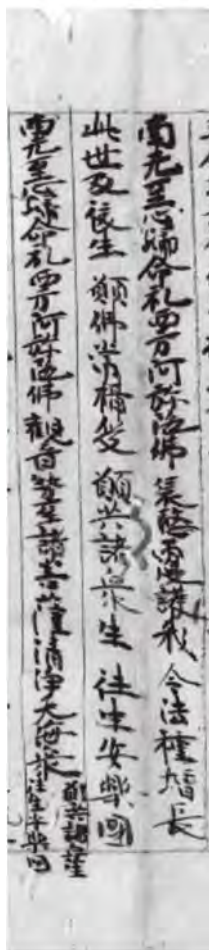 南无至心歸命礼西方阿弥陀佛 哀愍覆護我 令法種增長
此世及後生 願佛常攝受 願共諸衆生 往生安樂國
南无至心歸命礼西方阿弥陀佛 觀音勢至諸菩薩清淨大海衆 願共諸衆生往生安樂国